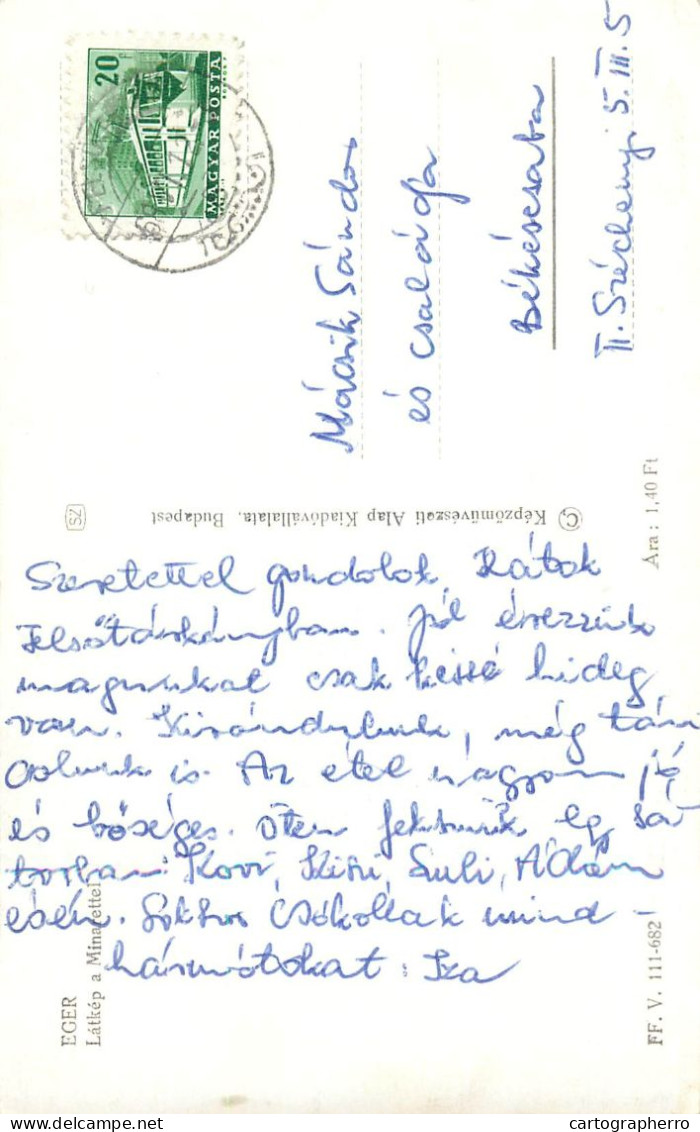 20 f
MAGYAR POSTA
Mácsik Sándor
és családja
Békéscsaba
II. Széchenyi 5. III. 5
Képzőművészeti Alap Kiadóvállalata, Budapest
SZ
Ára: 1,40 Ft
Szeretettel gondolok Rátok
Felsőtárkányban. Jól érezzük
magunkat csak kissé hideg
van. Kirándulunk, még tán
colunk is. Az étel nagyon jó
és bőséges. Öten fekszünk egy sá
torban: Kovi, Kisi, Suli, Ádám
és én. Sokszor csókollak mind-
hármótokat: Iza
EGER
Látkép a Minarettel
FF. V. 111-682
cartographerro